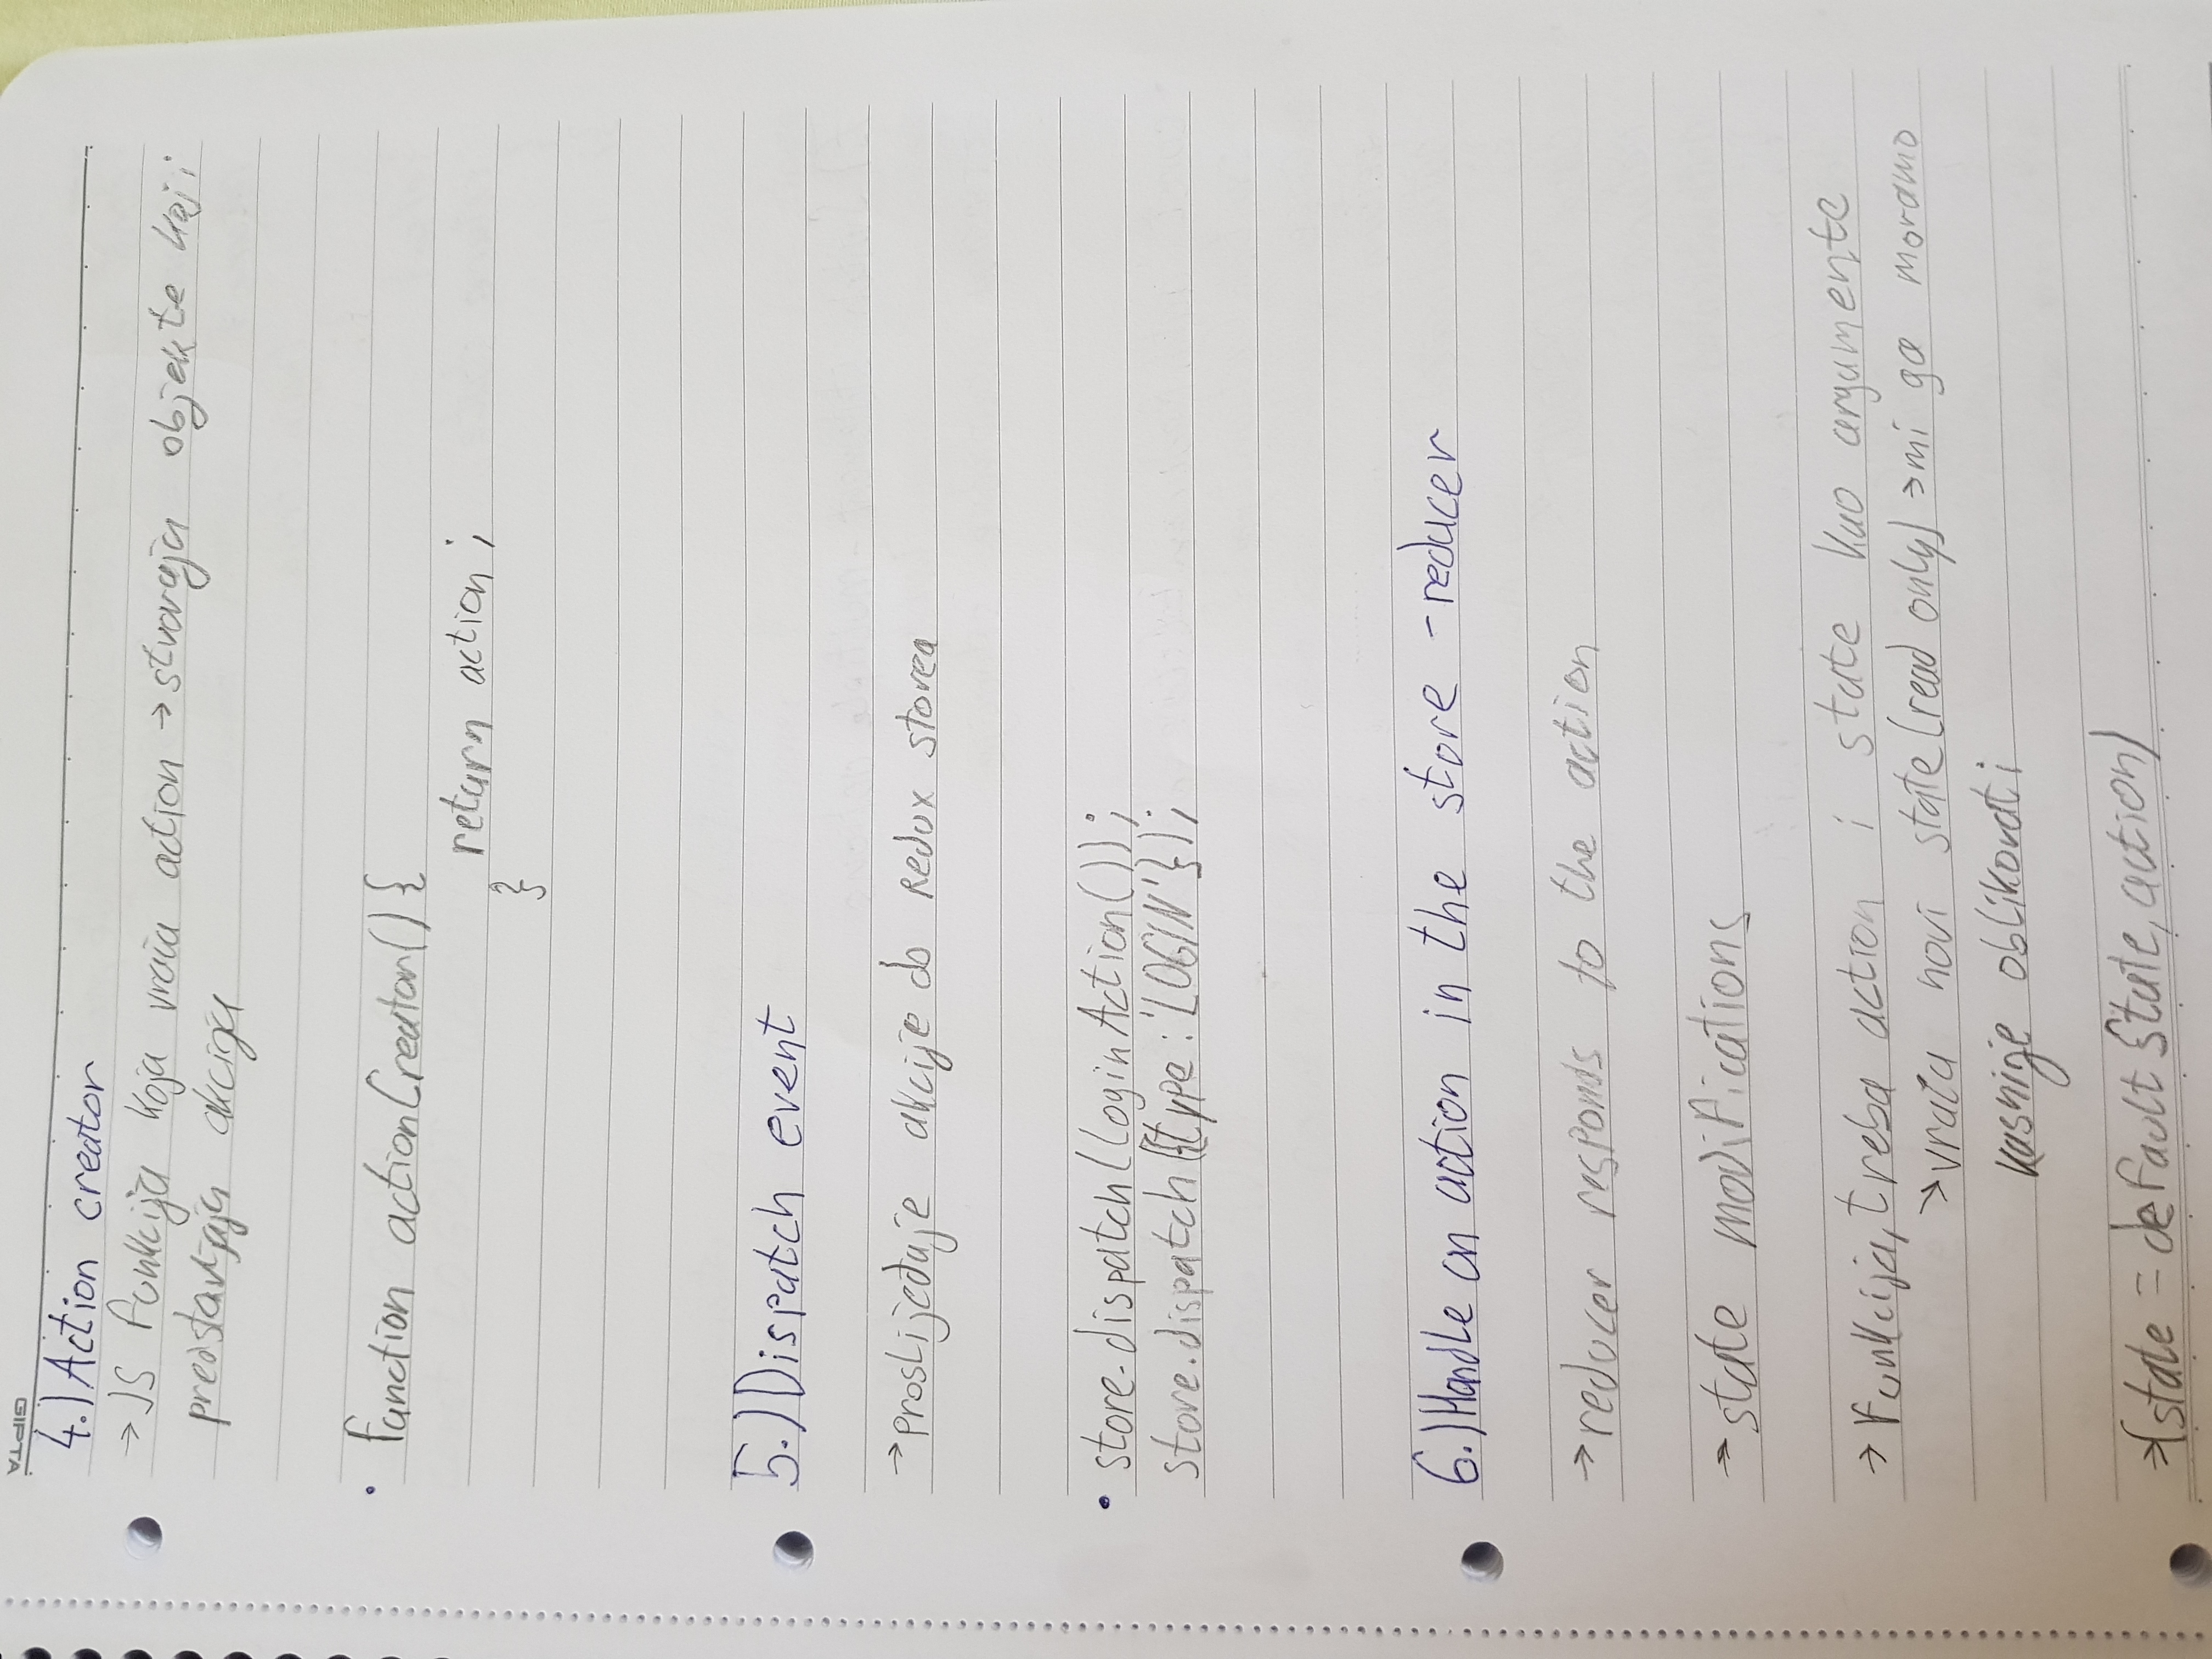 GIPTA
4.) Action creator
→ JS funkcija koja vraća action → stvaraju objekte koji
predstavljaju akciju
• function actionCreator() {
return action;
}
5.) Dispatch event
→ proslijeđuje akcije do Redux storea
• store.dispatch(loginAction());
store.dispatch({type: 'LOGIN'});
6.) Handle an action in the store - reducer
→ reducer responds to the action
→ state modifications
→ Funkcija, treba action i state kao argumente
→ vraća novi state (read only) → mi ga moramo
kasnije oblikovati
→ (state = defaultState, action)